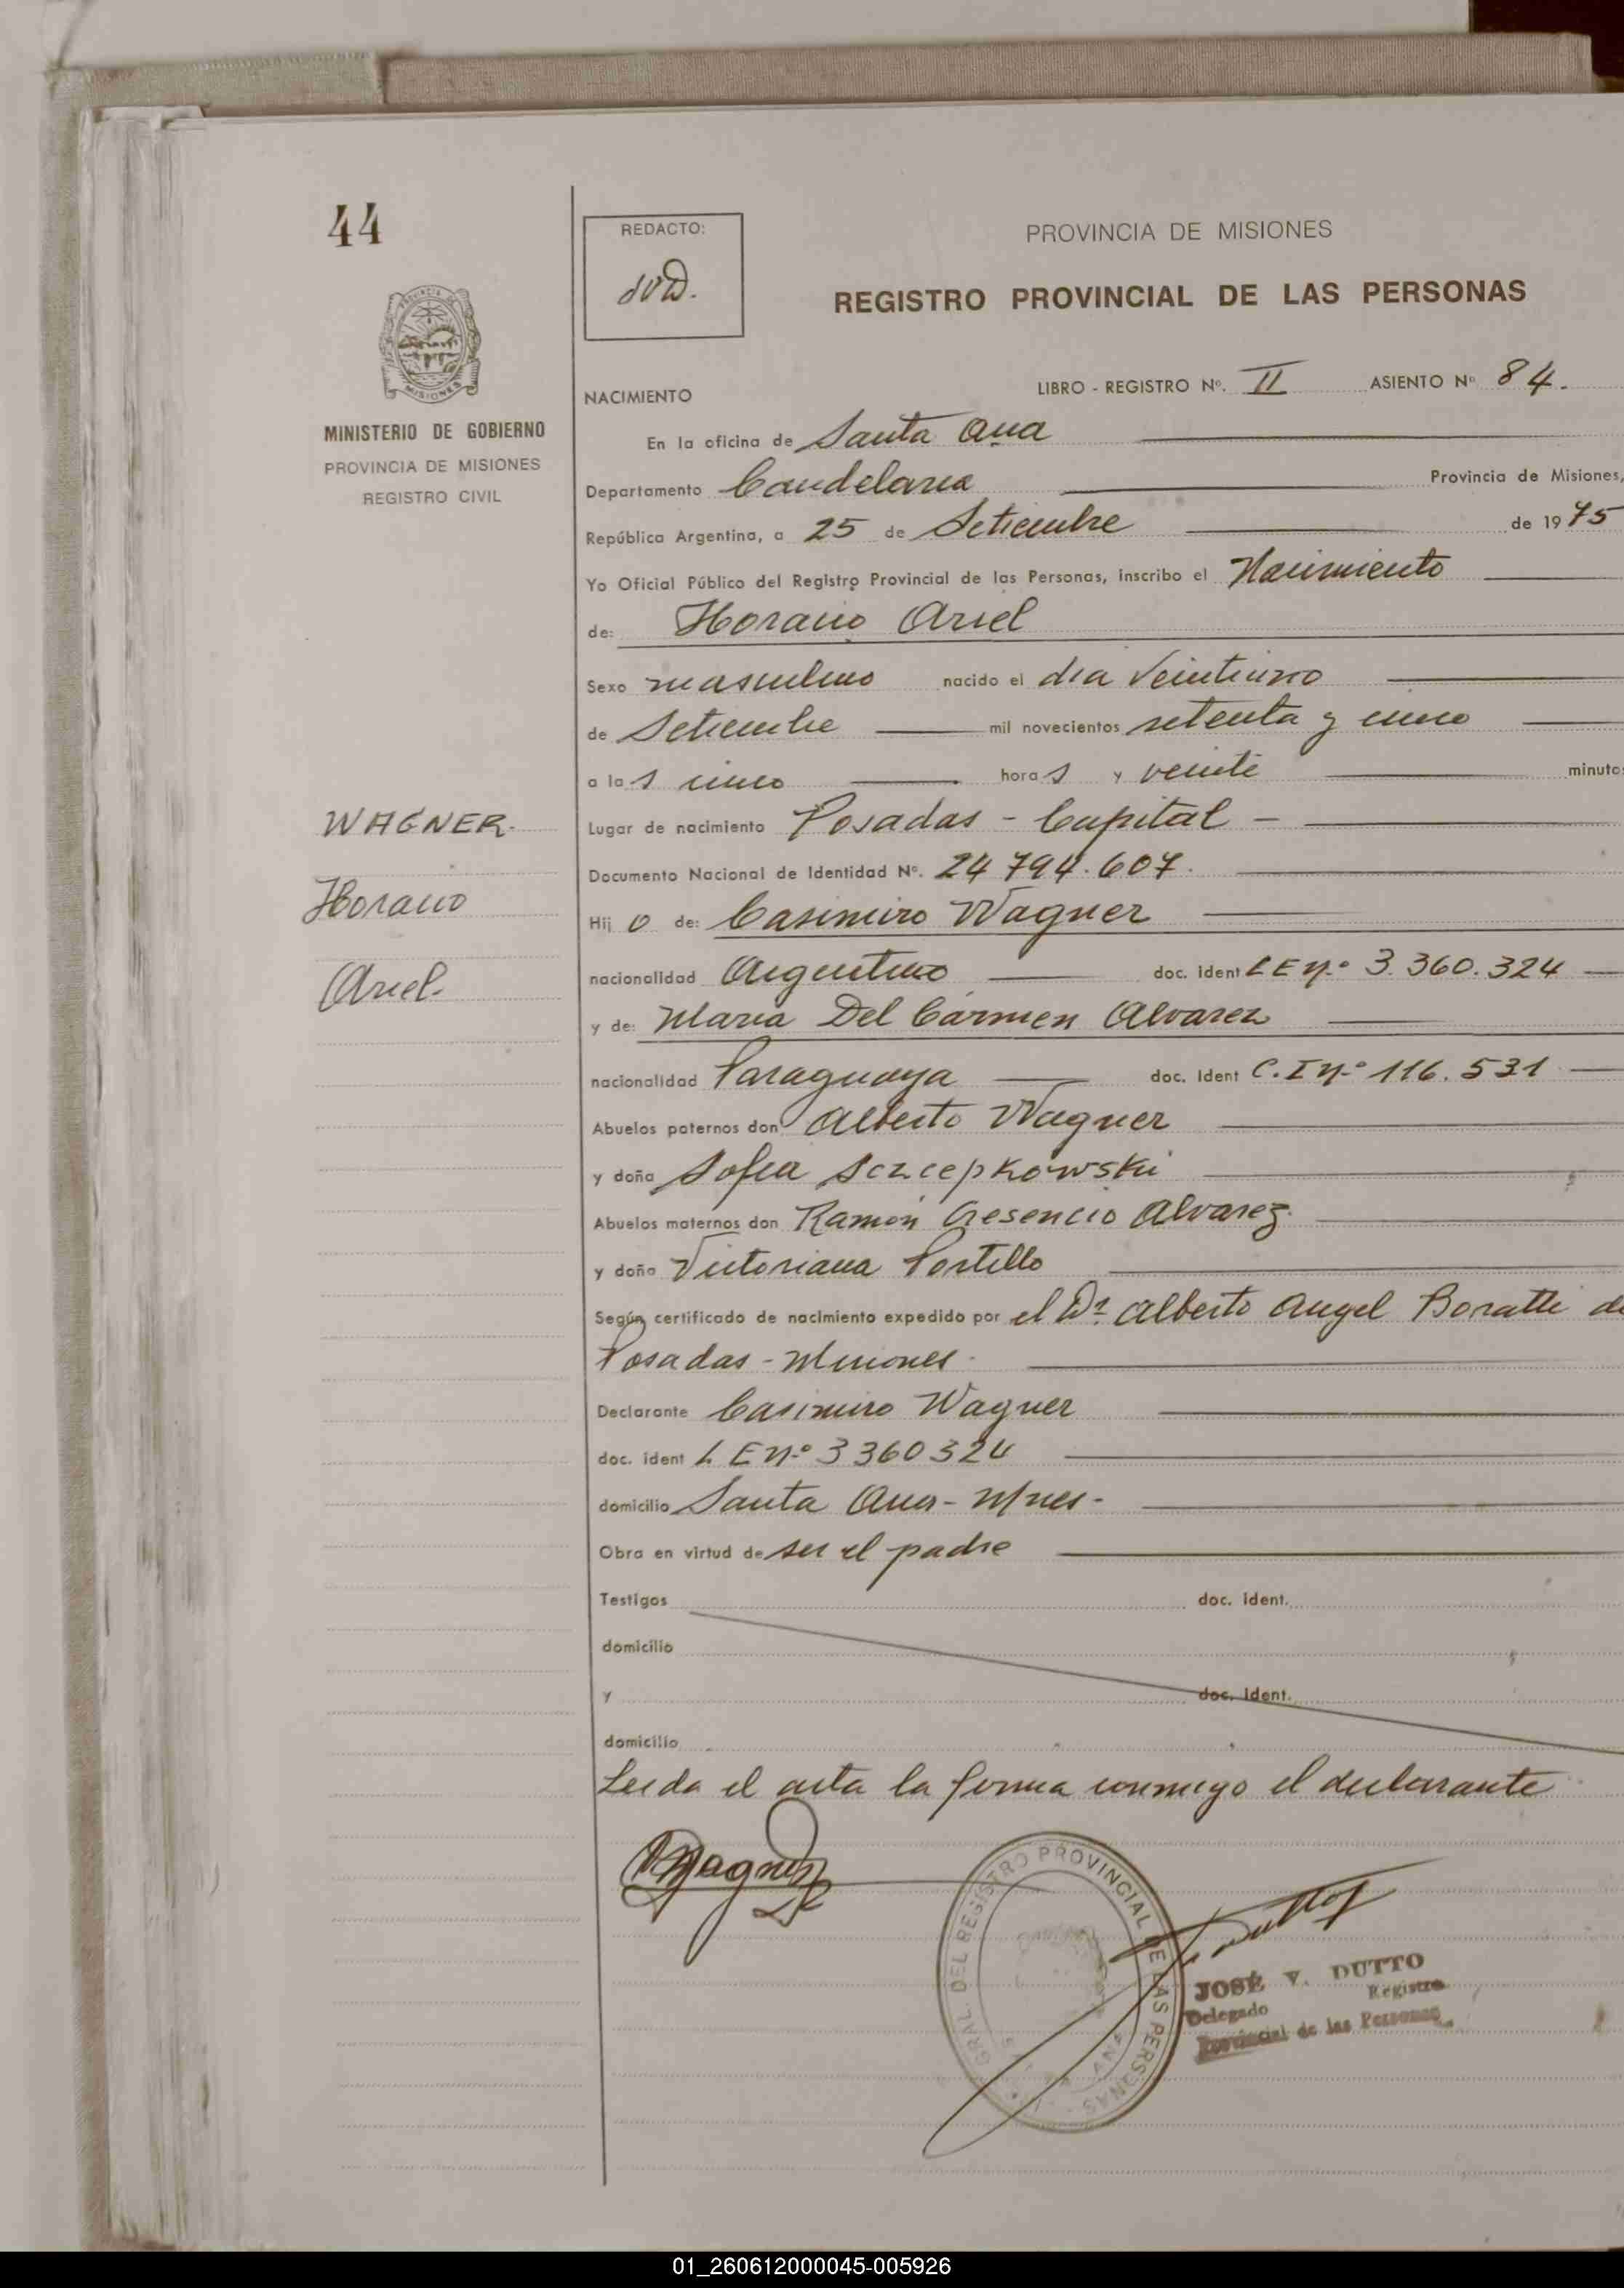 44
REDACTO:
PROVINCIA DE MISIONES
REGISTRO PROVINCIAL DE LAS PERSONAS
MISIONES
MINISTERIO DE GOBIERNO
PROVINCIA DE MISIONES
REGISTRO CIVIL
NACIMIENTO LIBRO - REGISTRO Nº. II ASIENTO Nº 84.
En la oficina de Santa Ana
Departamento Candelaria Provincia de Misiones,
República Argentina, a 25 de Setiembre de 1975
Yo Oficial Público del Registro Provincial de las Personas, inscribo el Nacimiento
de: Horacio Ariel
Sexo masculino nacido el dia Veintiuno
de Setiembre mil novecientos setenta y cinco
a las cinco horas y veinte minuto
Lugar de nacimiento Posadas - Capital -
Documento Nacional de Identidad Nº. 24 794.607.
Hijo de: Casimiro Wagner
nacionalidad Argentino doc. ident LE Nº 3.360.324
y de: Maria Del Carmen Alvarez
nacionalidad Paraguaya doc. ident C.I Nº 116.531
Abuelos paternos don Alberto Wagner
y doña Sofia Sczcepkowski
Abuelos maternos don Ramón Cresencio Alvarez.
y doña Victoriana Portillo
Según certificado de nacimiento expedido por el Dr. Alberto Angel Boratti de
Posadas - Misiones.
Declarante Casimiro Wagner
doc. ident L E Nº 3360324
domicilio Santa Ana - Mnes -
Obra en virtud de ser el padre
Testigos doc. ident.
domicilio
y doc. ident.
domicilio
Leida el acta la firma conmigo el declarante
WAGNER.
Horacio
Ariel.
Wagner
GRAL. DEL REGISTRO PROVINCIAL DE LAS PERSONAS
ANA
JOSÉ V. DUTTO
Delegado Registro
Provincial de las Personas
01_260612000045-005926